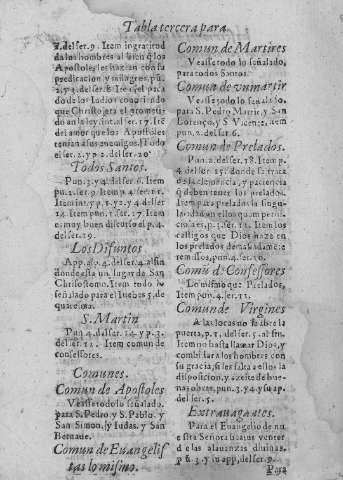 Tabla tercera para
2. del ser. 9. Item ingratitud
de los hombres al bien que los
Apostoles les hazian con su
predicacion y milagros, pu.
2. y 3. del ser. 6. Item
do de los Iudios
que Christo era el prometi-
do en la ley, int. al ser. 17. Ite
del amor que los Apostoles
tenian a sus enemigos. Todo
el ser. 2. y p. 2. del ser. 20.
Todos Santos.
Pun. 3. y 4. del ser. 6. Item
pu. 2. ser. 9. Item p. 4. ser. 11.
Item in. y p. 1. y 2. y 4. del ser
14. Item pun. 1. ser. 17. Item
es muy buen discurso el p. 4.
del ser. 19.
Los Difuntos
App. al p. 4. del ser. 4. al fin
donde esta un lugar de San
Christostomo. Item todo lo
señalado para el Iueves 5. de
quaresma.
S. Martin
Pun. 4. del ser. 14. y p. 3.
del ser. 12. Item comun de
confessores.
Comunes.
Comun de Apostoles
Vease todo lo señalado,
para S. Pedro y S. Pablo, y
San Simon, y Iudas, y San
Bernaue.
Comun de Euangelis
tas lo mismo.
Comun de Martires
Vease todo lo señalado,
para todos Santos.
Comun de un martir
Vease todo lo señalado,
para S. Pedro Martir, y San
Lorenço, y S. Vicente, item
pun. 2. del ser. 6.
Comun de Prelados.
Pun. 2. del ser. 18. Item p.
4. del ser. 15. donde se trata
de la clemencia, y paciencia
q deben tener los prelados.
Item para prelados singu-
landan en ellos
ores, p. 3. ser. 12. Item los
castigos que Dios haze en
los prelados
item pun. 4. ser. 10.
Comu d. Confessores
Lo mismo que Prelados,
Item pun. 4. ser. 12.
Comun de Virgines
A las locas no se abre la
puerta, p. 1. del ser. 5. al fin.
Item no basta llamar Dios, y
combidar a los hombres con
su gracia, si les falta a ellos la
disposicion, y azeite de bue-
nas obras, pun. 3. y 4. y su ap.
del ser. 5.
Extrauagates.
Para el Euangelio de nu
estra Señora quando
de las alauanzas diuinas.
p u. 3. y su app. del ser. 9.
Para